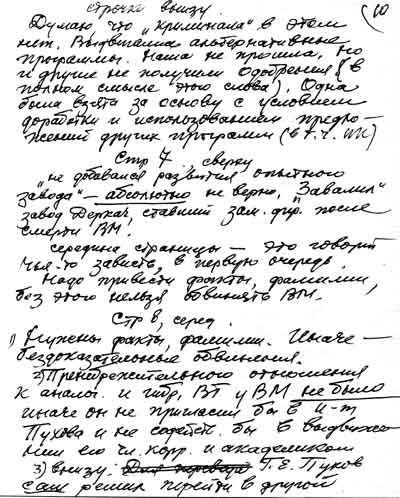 строчки внизу.
10
Думаю, что "криминала" в этом
нет. Выдвигались альтернативные
программы. Наша не прошла, но
и другие не получили одобрения (в
полном смысле этого слова). Одна
была взята за основу с условием
доработки и использованием предло-
жений других программ (в т.ч. ИК)
Стр 7, сверху
"не добивался развития опытного
завода" – абсолютно не верно. "Завалил"
завод Деркач, ставший зам. дир. после
смерти ВМ.
середина страницы – это говорит
чья-то зависть, в первую очередь.
Надо привести факты, фамилии,
без этого нельзя обвинять ВМ.
Стр 8, серед.
1) Нужны факты, фамилии. Иначе –
бездоказательные обвинения.
2) Пренебрежительного отношения
к аналог. и гибр. ВТ у ВМ не было
иначе он не пригласил бы в и-т
Пухова и не содейств. бы в выдвиже-
нии его чл. корр. и академиком
3) внизу. Г.Е. Пухов
сам решил перейти в другой